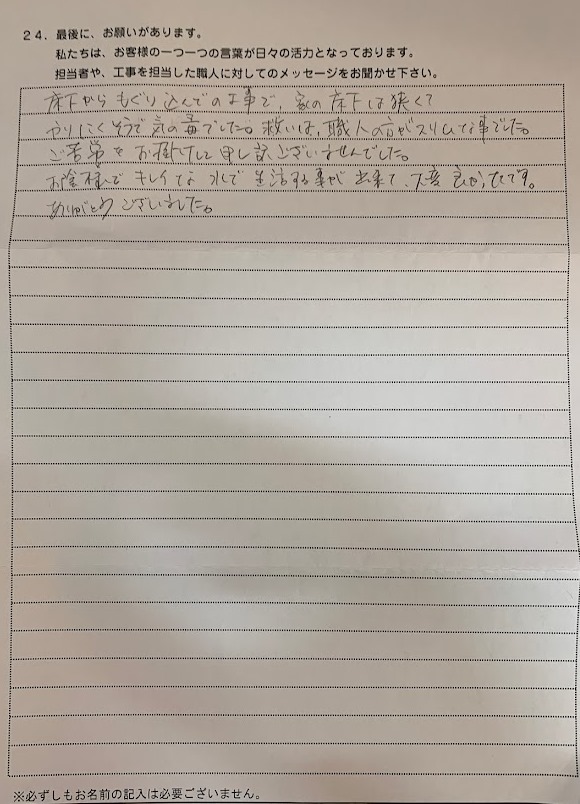 24．最後に、お願いがあります。
私たちは、お客様の一つ一つの言葉が日々の活力となっております。
担当者や、工事を担当した職人に対してのメッセージをお聞かせ下さい。
床下からもぐり込んでの工事で、家の床下は狭くて
やりにくそうで気の毒でした。救いは、職人の方がスリムな事でした。
ご苦労をお掛けして申し訳ございませんでした。
お陰様でキレイな水で生活する事が出来て、大変良かったです。
ありがとうございました。
※必ずしもお名前の記入は必要ございません。